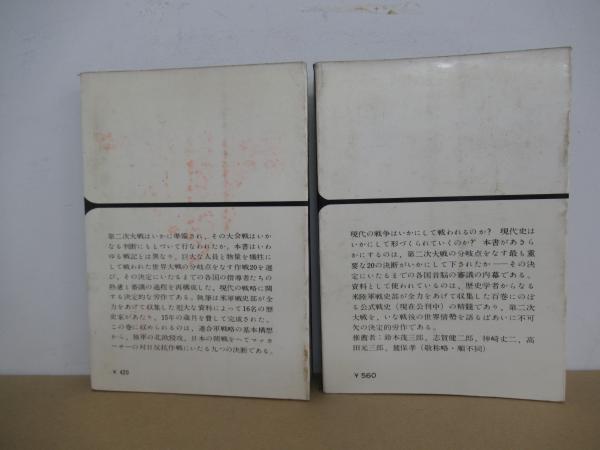 第二次大戦はいかに準備され、その大会戦はいか
なる判断にもとづいて行なわれたか。本書はいわ
ゆる戦記とは異なり、巨大な人員と物量を犠牲に
して戦われた世界大戦の分岐点をなす作戦20を選
び、その決定にいたるまでの各国の指導者たちの
熟慮と審議の過程を再構成した、現代の戦略に関
する決定的な労作である。執筆は米軍戦史部が全
力をあげて収集した厖大な資料によって16名の歴
史家があたり、15年の歳月を費して完成された。
この巻に収められるのは、連合軍戦略の基本構想
から、独軍の北欧侵攻、日本の開戦をへてマッカ
ーサーの対日反抗作戦にいたる九つの決断である。
¥ 420
現代の戦争はいかにして戦われるのか? 現代史は
いかにして形づくられていくのか? 本書があきら
かにするのは、第二次大戦の分岐点をなす最も重
要な20の決断がいかにして下されたか——その決
定にいたるまでの各国首脳の審議の内幕である。
資料として使われているのは、歴史学者からなる
米陸軍戦史部が全力をあげて収集した百巻にのぼ
る公式戦史(現在公刊中)の精髄であり、第二次
大戦を、いな戦後の世界情勢を語るばあいに不可
欠の決定的労作である。
推薦者:鈴木茂三郎、志賀健二郎、神崎丈二、高
田元三郎、俵孝(敬称略・順不同)
¥ 560